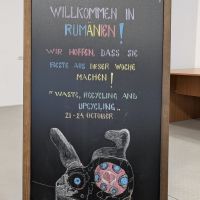 WILLKOMMEN IN
RUMÄNIEN!
WIR HOFFEN, DASS SIE
BESTE AUS DIESER WOCHE
MACHEN!
"WASTE, RECYCLING AND
UPCYCLING"
21-24 OCTOBER